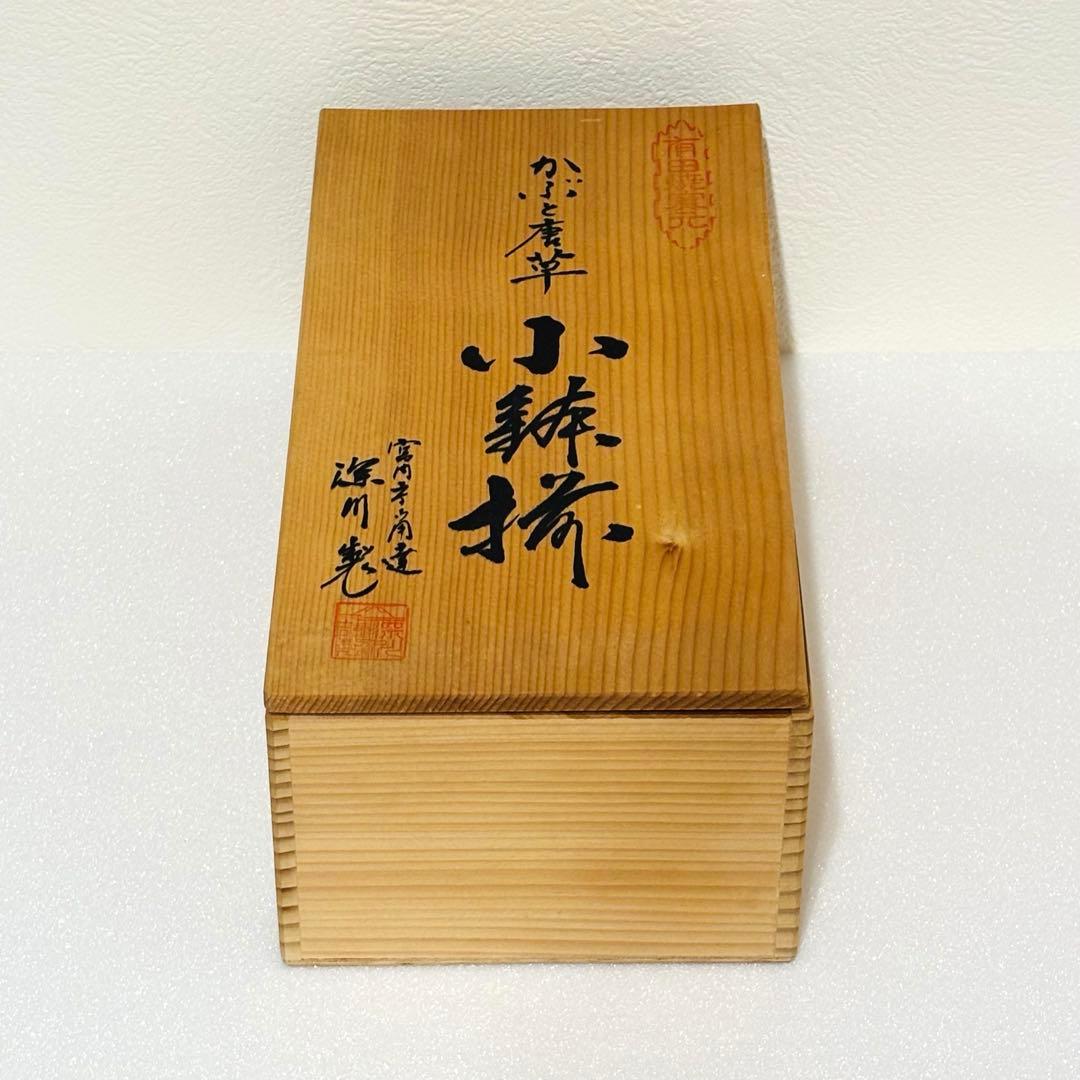 有田焼窯元
かぶと唐草
小鉢揃
宮内庁御用達
深川製